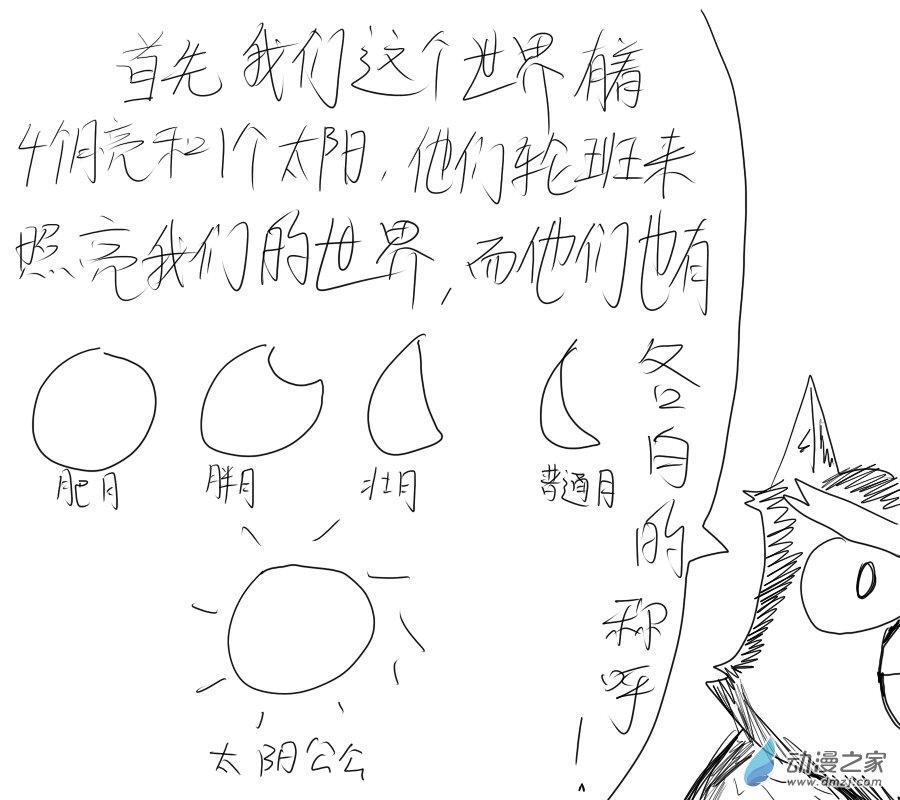 首先我们这个世界有着
4个月亮和1个太阳，他们轮班来
照亮我们的世界，而他们也有
各自的称呼！
肥月
胖月
壮月
普通月
太阳公公
动漫之家
www.dmzj.com